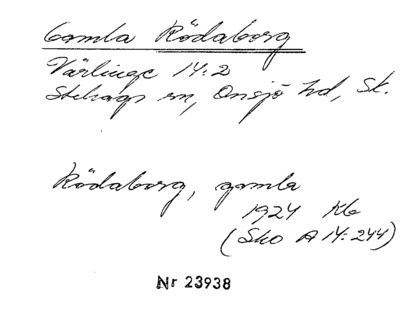 Gamla Rödaborg
Värlinge 14:2
Stehags sn, Onsjö hd, Sk.
Rödaborg, gamla
1924 Kb
(Sko A 14:244)
Nr 23938